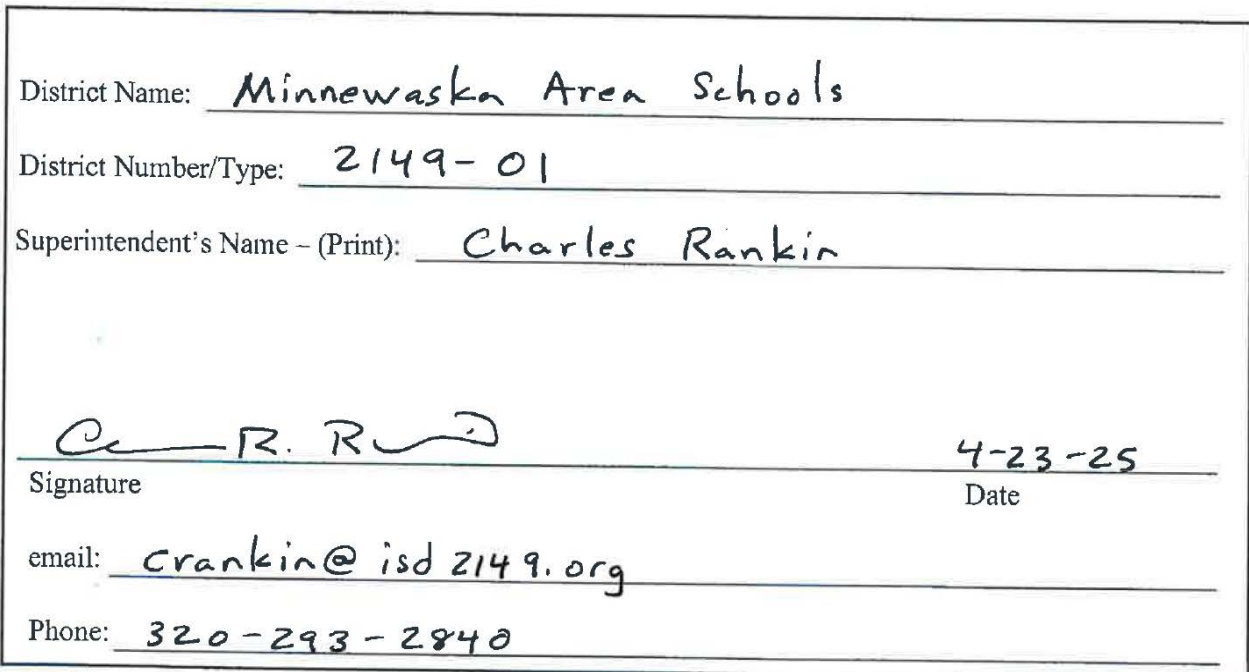 District Name: Minnewaska Area Schools
District Number/Type: 2149-01
Superintendent's Name – (Print): Charles Rankin
R. R
4-23-25
Signature Date
email: crankin@isd2149.org
Phone: 320-293-2840